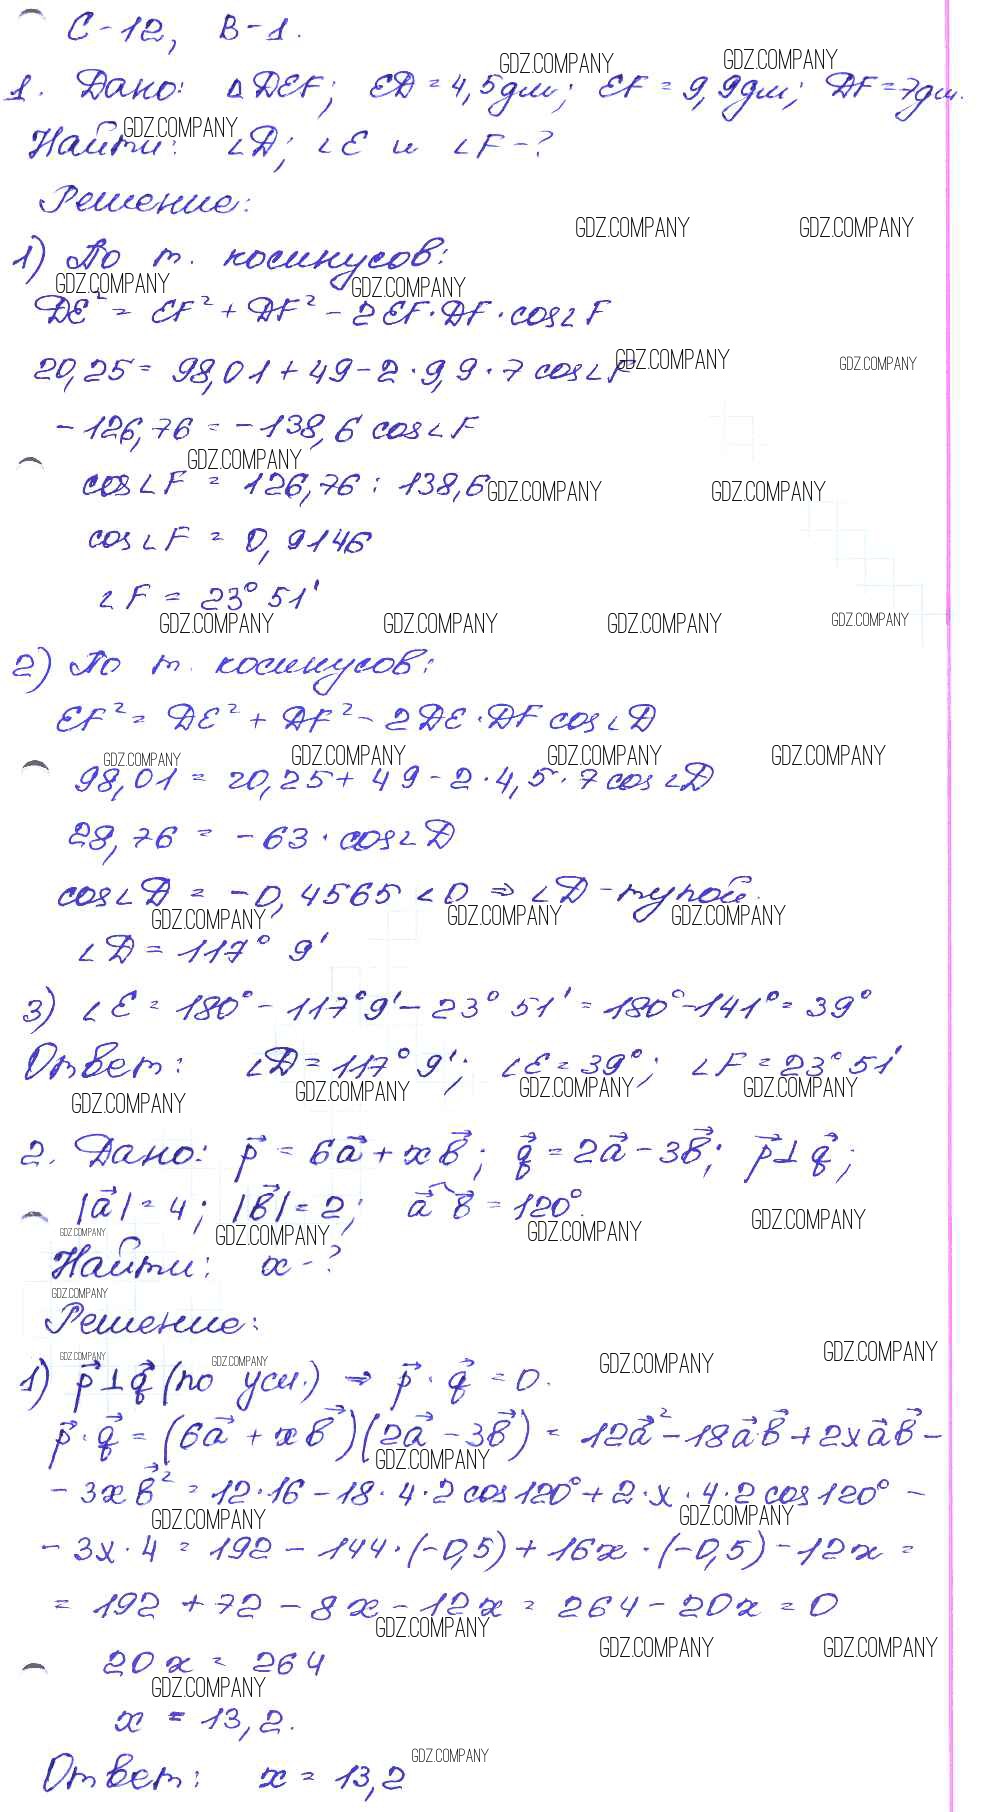 С-12, В-1.
GDZ.COMPANY GDZ.COMPANY
1. Дано: △DEF; ED = 4,5дм; EF = 9,9дм; DF = 7дм.
GDZ.COMPANY
Найти: ∠D; ∠E и ∠F - ?
Решение:
GDZ.COMPANY GDZ.COMPANY
1) По т. косинусов:
GDZ.COMPANY GDZ.COMPANY
DE² = EF² + DF² - 2EF·DF·cos∠F
GDZ.COMPANY GDZ.COMPANY
20,25 = 98,01 + 49 - 2·9,9·7 cos∠F
-126,76 = -138,6 cos∠F
GDZ.COMPANY
cos∠F = 126,76 : 138,6
GDZ.COMPANY GDZ.COMPANY
cos∠F = 0,9146
∠F = 23° 51'
GDZ.COMPANY GDZ.COMPANY GDZ.COMPANY GDZ.COMPANY
2) По т. косинусов:
EF² = DE² + DF² - 2DE·DF cos∠D
GDZ.COMPANY GDZ.COMPANY GDZ.COMPANY GDZ.COMPANY
98,01 = 20,25 + 49 - 2·4,5·7 cos∠D
28,76 = -63·cos∠D
cos∠D = -0,4565 < 0 ⇒ ∠D - тупой.
GDZ.COMPANY GDZ.COMPANY GDZ.COMPANY
∠D = 117° 9'
3) ∠E = 180° - 117°9' - 23° 51' = 180° - 141° = 39°
Ответ: ∠D = 117° 9'; ∠E = 39°; ∠F = 23° 51'
GDZ.COMPANY GDZ.COMPANY GDZ.COMPANY GDZ.COMPANY
2. Дано: p⃗ = 6a⃗ + xb⃗; q⃗ = 2a⃗ - 3b⃗; p⃗ ⊥ q⃗;
|a⃗| = 4; |b⃗| = 2; a⃗ ^ b⃗ = 120°.
GDZ.COMPANY GDZ.COMPANY GDZ.COMPANY GDZ.COMPANY
Найти: x - ?
GDZ.COMPANY
Решение:
GDZ.COMPANY GDZ.COMPANY GDZ.COMPANY GDZ.COMPANY
1) p⃗ ⊥ q⃗ (по усл.) ⇒ p⃗ · q⃗ = 0.
p⃗ · q⃗ = (6a⃗ + xb⃗)(2a⃗ - 3b⃗) = 12a⃗² - 18a⃗b⃗ + 2xa⃗b⃗ -
GDZ.COMPANY
- 3xb⃗² = 12·16 - 18·4·2 cos120° + 2·x·4·2 cos120° -
GDZ.COMPANY GDZ.COMPANY
- 3x·4 = 192 - 144·(-0,5) + 16x·(-0,5) - 12x =
= 192 + 72 - 8x - 12x = 264 - 20x = 0
GDZ.COMPANY GDZ.COMPANY GDZ.COMPANY
20x = 264
GDZ.COMPANY
x = 13,2.
GDZ.COMPANY
Ответ: x = 13,2